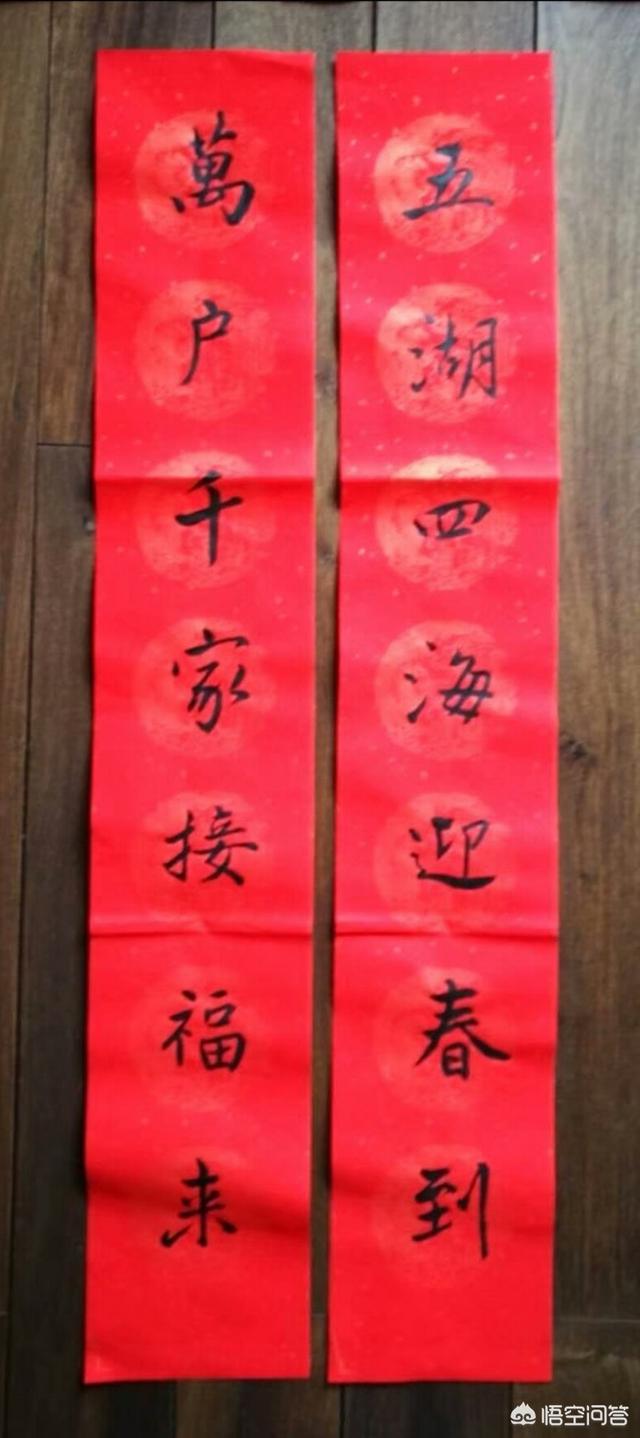 五湖四海迎春到
萬户千家接福来
悟空问答